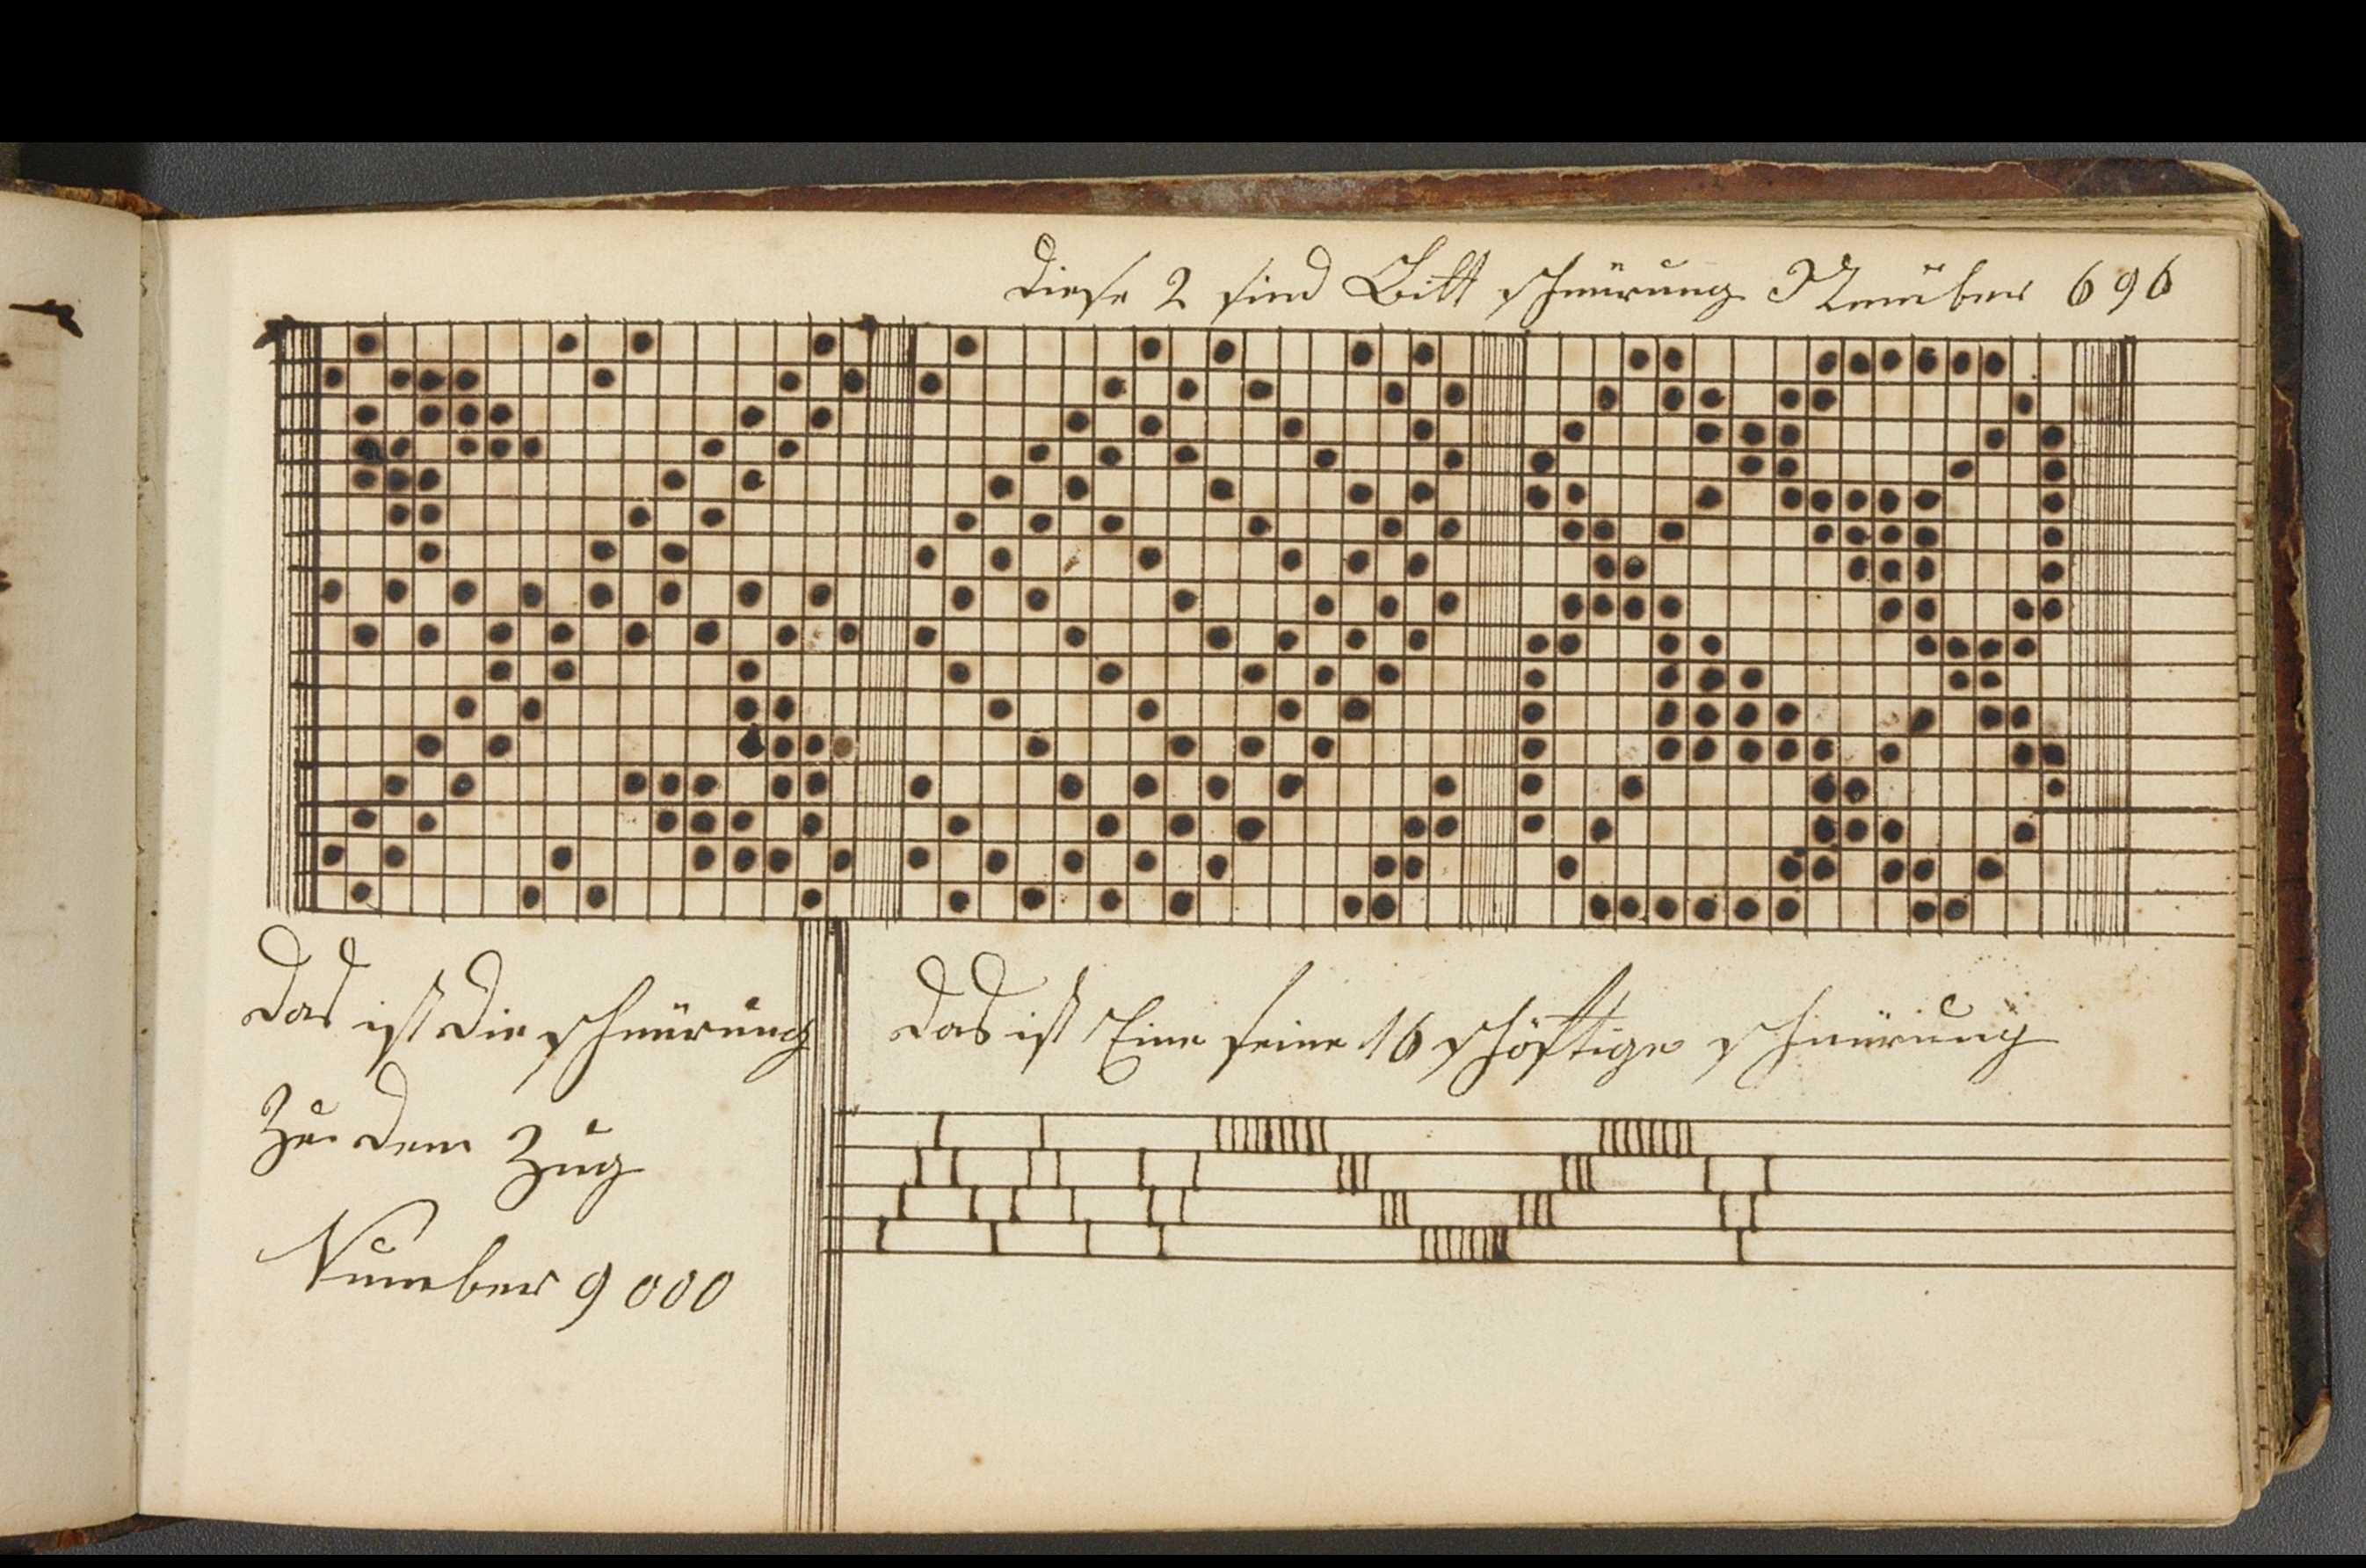 diese 2 sind Bitt schnürung Numüber 696
das ist die schnürung
Zu dem Zug
Number 9000
das ist Eine feine 16 schöftige schnürung